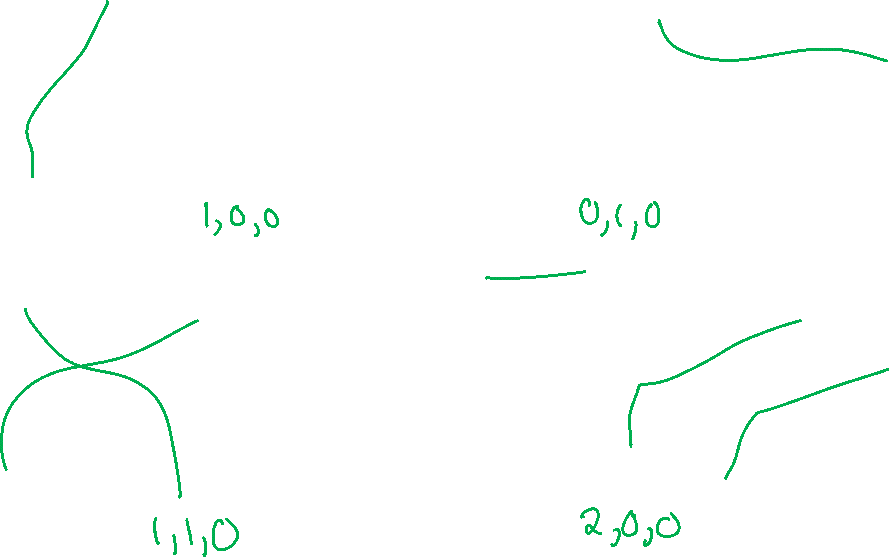 1,0,0
0,1,0
1,1,0
2,0,0